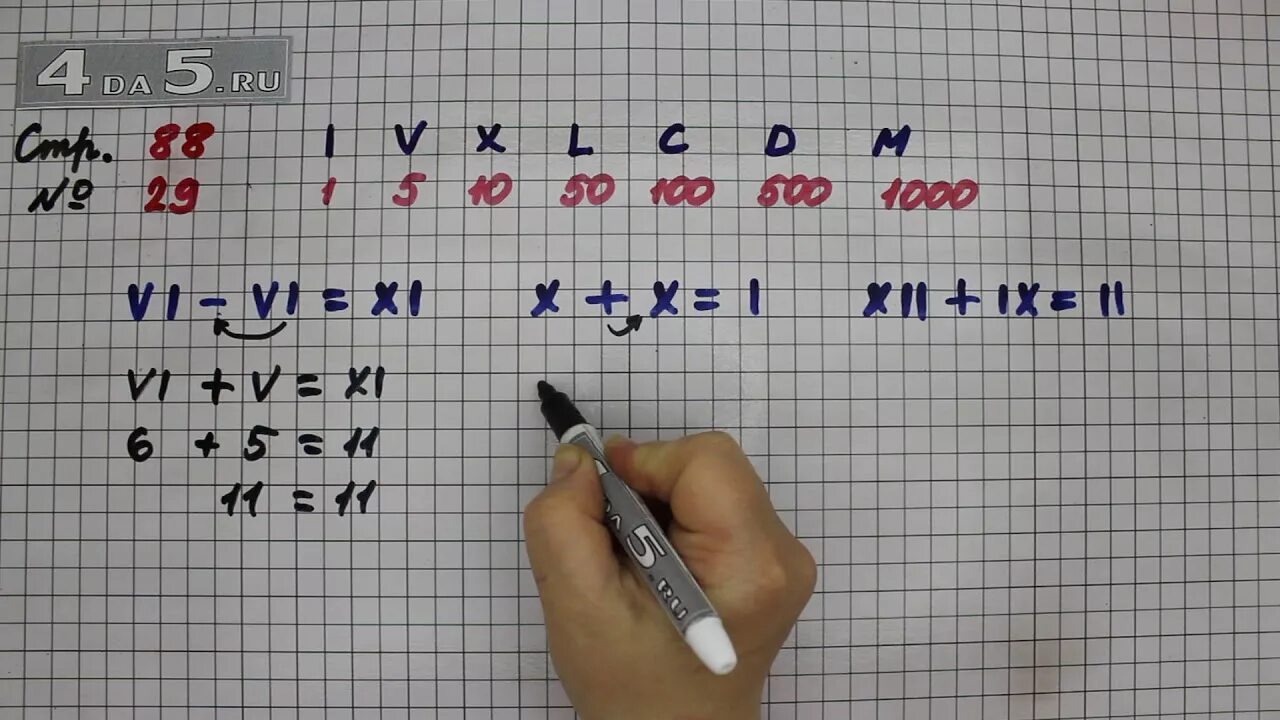 4DA5.RU
Стр. 88 I V X L C D M
№ 29 1 5 10 50 100 500 1000
VI - VI = XI X + X = I XII + IX = II
VI + V = XI
6 + 5 = 11
11 = 11
DA5.RU